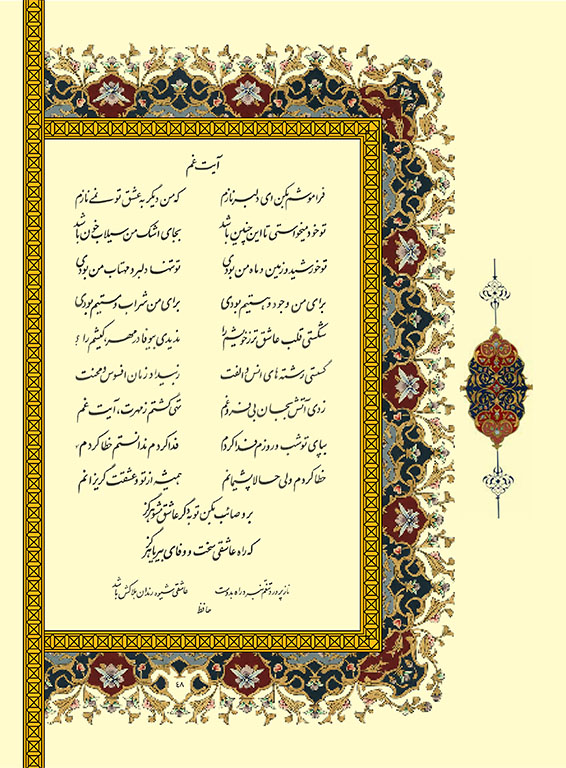 آیت غم
فراموشم بکن ای دلبر نازم که من دیگر به عشق تو نمی نازم
تو خود میخواستی تا این چنین باشد بجای اشک من سیلاب خون باشد
تو خورشید و زمین و ماه من بودی تو تنها دلبر و مهتاب من بودی
برای من وجود و هستیم بودی برای من شراب و مستیم بودی
شکستی قلب عاشق تر ز خویشم را ندیدی بیوفا در مهر، کیشم را ؟
گسستی رشته های انس و الفت رسید از زمان افسوس و محنت
زدی آتش بجان بی فروغم تهی گشتم ز مهرت، آیت غم
بپای تو شب و روزم فدا کردم فدا کردم ندانستم خطا کردم
خطا کردم ولی حالا پشیمانم همیشه از تو و عشقت گریزانم
برو صائب مکن توبه دگر عاشق مشو هرگز
که راه عاشقی سخت و وفای بپرهیز
ناز پرورد تنعم نبرد راه بدوست عاشقی شیوه رندان بلاکش باشد
حافظ
۴۸